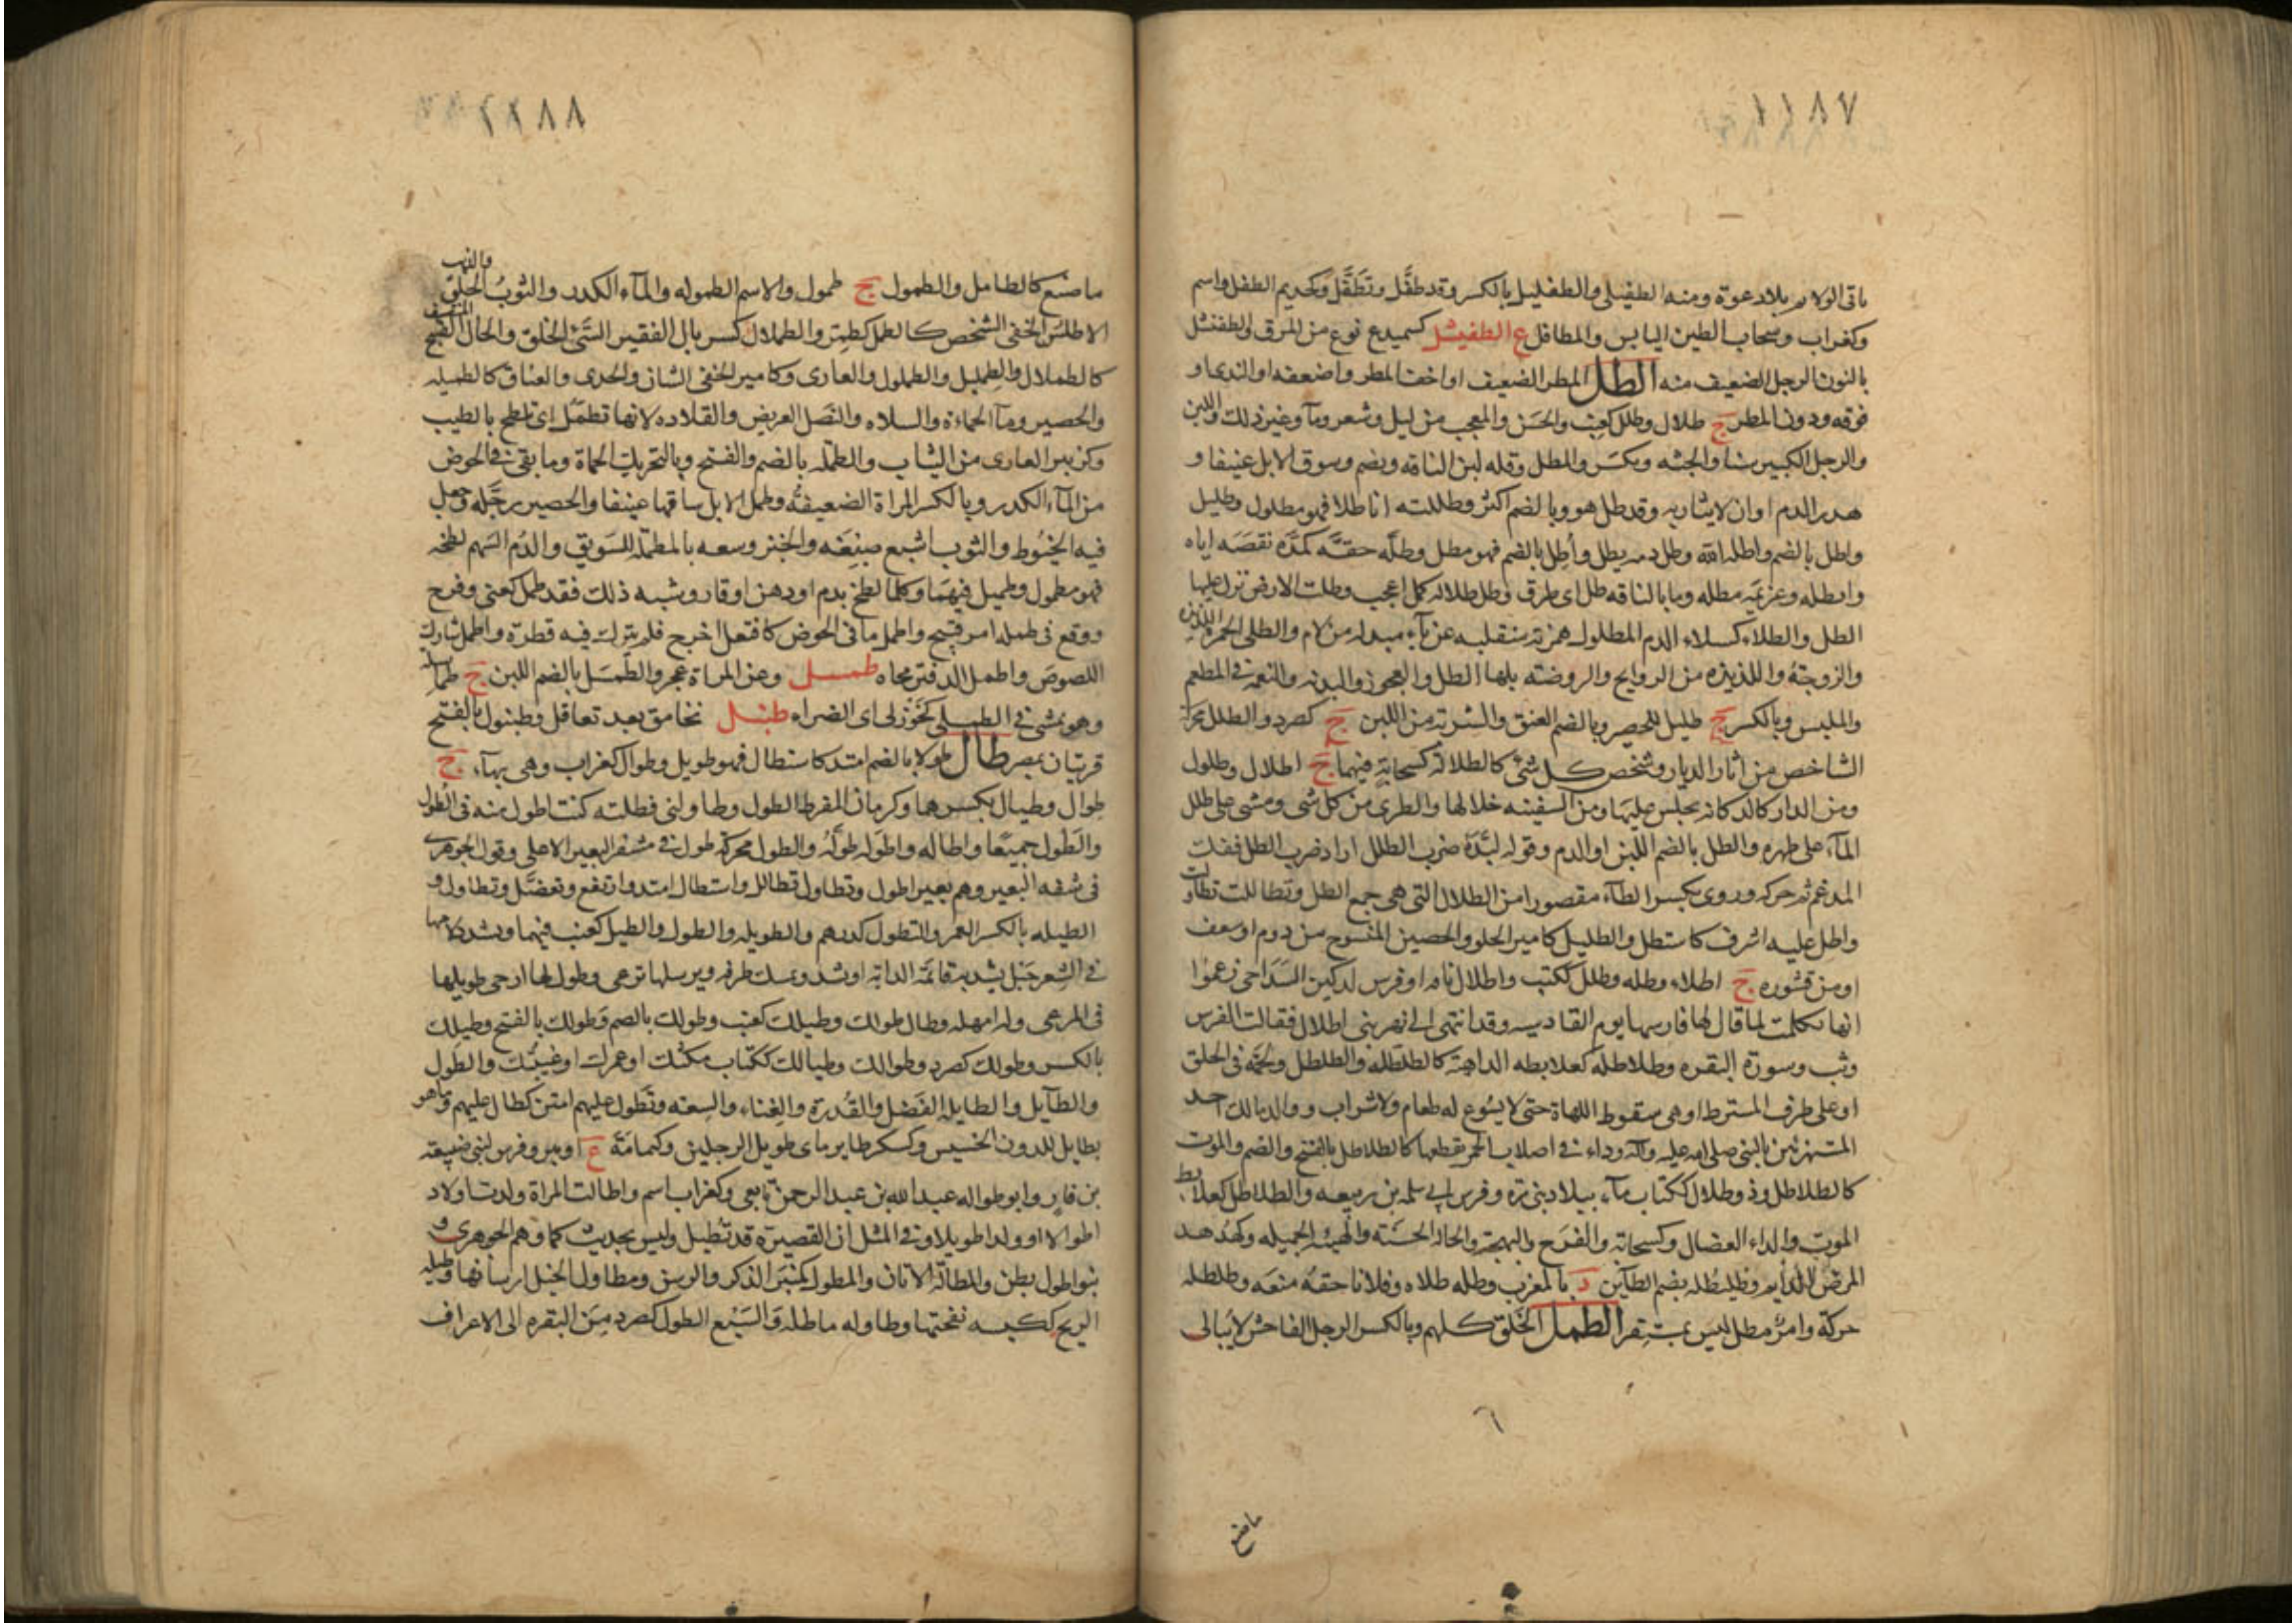 ١١٨٧
ياتى الولائم بلا دعوة ومنه الطفيلى والطفليل بالكسر وقد طفل وتطفل وكحذيم الطفل واسم
وكغراب وسحاب الطين اليابس والمطافل ع الطفيشل كسميدع نوع من المرق والطفنشل
بالنون الرجل الضعيف منه الطل المطر الضعيف او اخف المطر واضعفه او الندى او
فوقه ودون المطر ج طلال وطلل كعنب والحسن والمعجب من ليل وشعر وماء وغير ذلك واللبن
والرجل الكبير سنا والجثه ويكسر والمطل وقله لبن الناقه ويضم وسوق الابل عنيفا و
هدر الدم او ان لا يثار به وقد طل هو وبالضم اكثر وطللته انا طلا فهو مطلول وطليل
واطل بالضم واطله الله وطل دمه يطل وأطل بالضم فهو مطل وطله حقه كمده نقصه اياه
وابطله وعزيمه مطله وما بالناقه طل اى طرق وطل طلاله كمل اعجب وطلت الارض نزل عليها
الطل والطلاء كسلاء الدم المطلول همزته منقلبه عن ياء مبدله من لام والطلى الخمره اللذيذه
والزوجة واللذيذه من الروايح والروضته بلها الطل والعجوز والبذيه والنعمه فى المطعم
والملبس وبالكسر ج طليل للحصير وبالضم العنق والشربة من اللبن ج كصرد والطلل محركة
الشاخص من اثار الديار وشخص كل شئ كالطلالة كسحابة فيهما ج اطلال وطلول
ومن الدار كالدكانه يجلس عليها ومن السفينه خلالها والطرى من كل شى ومشى على طلل
الماء على ظهره والطل بالضم اللبن او الدم وقوله لبدة ضرب الطلل اراد ضرب الطل ففك
المدغم ثم حركه وروى بكسر الطاء مقصورا من الطلال التى هى جمع الطل وتطاللت تطاولت
واطل عليه اشرف كاستطل والطليل كامير الحلو والحصير المنسوج من دوم او سعف
او من قشوره ج اطلاء وطله وطلل ككتب واطلال ناقه او فرس لبكير الشداخى زعموا
انها تكلمت لما قال لها فارسها يوم القادسيه وقد انتهى الى نهر بنى اطلال فقالت الفرس
وثب وسورة البقره وطلاطله كعلابطه الداهية كالطلطله والطلطل ولحمة فى الحلق
او على طرف المسترط او هى سقوط اللهاة حتى لا يسوع له طعام ولا شراب ووالد مالك احد
المستهزئين بالنبى صلى الله عليه وآله وداء فى اصلاب الحمر يقطعها كالطلاطل بالفتح والضم والموت
كالطلاطل وذو طلال ككتاب ماء ببلاد بنى مره وفرس ابى سلمه بن ربيعه والطلاطل كعلابط
الموت والداء العضال وكسحابة والفرح والبهجة والحالة الحسنة والهيئة الجميله وكهدهد
المرض الدايم وطليطله بضم الطائين د بالمغرب وطله طلاه وفلانا حقه منعه وطلطله
حركة وامر مطل ليس بمستقر الطمل الخلق كلهم وبالكسر الرجل الفاحش لا يبالى
٦
ماصنع
١١٨٨
ما صنع كالطامل والطمول ج طمول والاسم الطموله والماء الكدر والثوب الخلق والذئب
الاطلس الخفى الشخص كالطمل كطمر والطملال كسربال الفقير السئ الخلق والحال القبيح
كالطملال والطمليل والطملول والعارى وكامير الخفى الشان والجدى والعناق كالطميله
والحصير وماء الحماءة والسلاه والنصل العريض والقلاده لانها تطمل اى تلطخ بالطيب
وكزبير العارى من الثياب والطمله بالضم والفتح وبالتحريك الحماة وما بقى فى الحوض
من الماء الكدر وبالكسر المراة الضعيفة وطمل الابل ساقها عنيفا والحصير رجله وجعل
فيه الخيوط والثوب اشبع صبغه والخبز وسعه بالمطمله للشويق والدم السهم لطخه
فهو مطمول وطميل فيهما وكلما لطخ بدم او دهن او قار وشبه ذلك فقد طمل كعنى وفرح
ووقع فى طمله امر قبيح واطمل ما فى الحوض كافتعل اخرج فلم يترك فيه قطرة واطمل شارك
اللصوص واطمل الدفتر محاه طمسل وعن المراة عجر والطمسل بالضم اللبن ج
وهو يمشى فى الطبلى كخوزلى اى الضراء طنبل تحامق بعد تعاقل وطنبول بالفتح
قريتان بمصر طال طولا بالضم امتد كاستطال فهو طويل وطوال كغراب وهى بهاء ج
طوال وطيال بكسرهما وكرمان المفرط الطول وطاولنى فطلته كنت اطول منه فى الطول
والطول جميعا واطاله واطوله طوله والطول محركة طول فى مشفر البعير الاعلى وقول الجوهرى
فى شفه البعير وهم بعير اطول وتطاول تطالل واستطال امتد وارتفع وتفضل وتطاول و
الطيله بالكسر العمر والتطول كدرهم والطويله والطول والطيل كعنب فيهما وشد كلامها
فى الشعر حبل يشد به قائمة الدابة او تشد وتمسك طرفه ويرسلها ترعى وطول لها ارخى طويلها
فى المرعى وله امهله وطال طولك وطيلك كعنب وطولك بالضم وطولك بالفتح وطيلك
بالكسر وطولك كصرد وطوالك وطيالك ككتاب مكثك او عمرك او غيبتك والطول
والطآيل والطايله الفضل والقدرة والغناء والسعه وتطول عليهم امتن كطال عليهم وما هو
بطايل للدون الخسيس وكسكر طاير ماى طويل الرجلين وكثمامة ع او بير وفرس لبنى ضبيعه
بن قار وابو طواله عبد الله بن عبد الرحمن تابعى وكغراب اسم واطالت المراة ولدت اولاد
اطوالا او ولدا طويلا وفى المثل ان القصيرة قد تطيل وليس بحديث كما وهم الجوهرى و
بنو اطول بطن والمطالة الاتان والمطول كمنبر الذكر والرسن ومطاول الخيل ارسانها وطيله
الريح ككيسه نفحتها وطاوله ماطله والسبع الطول كصرد من البقره الى الاعراف